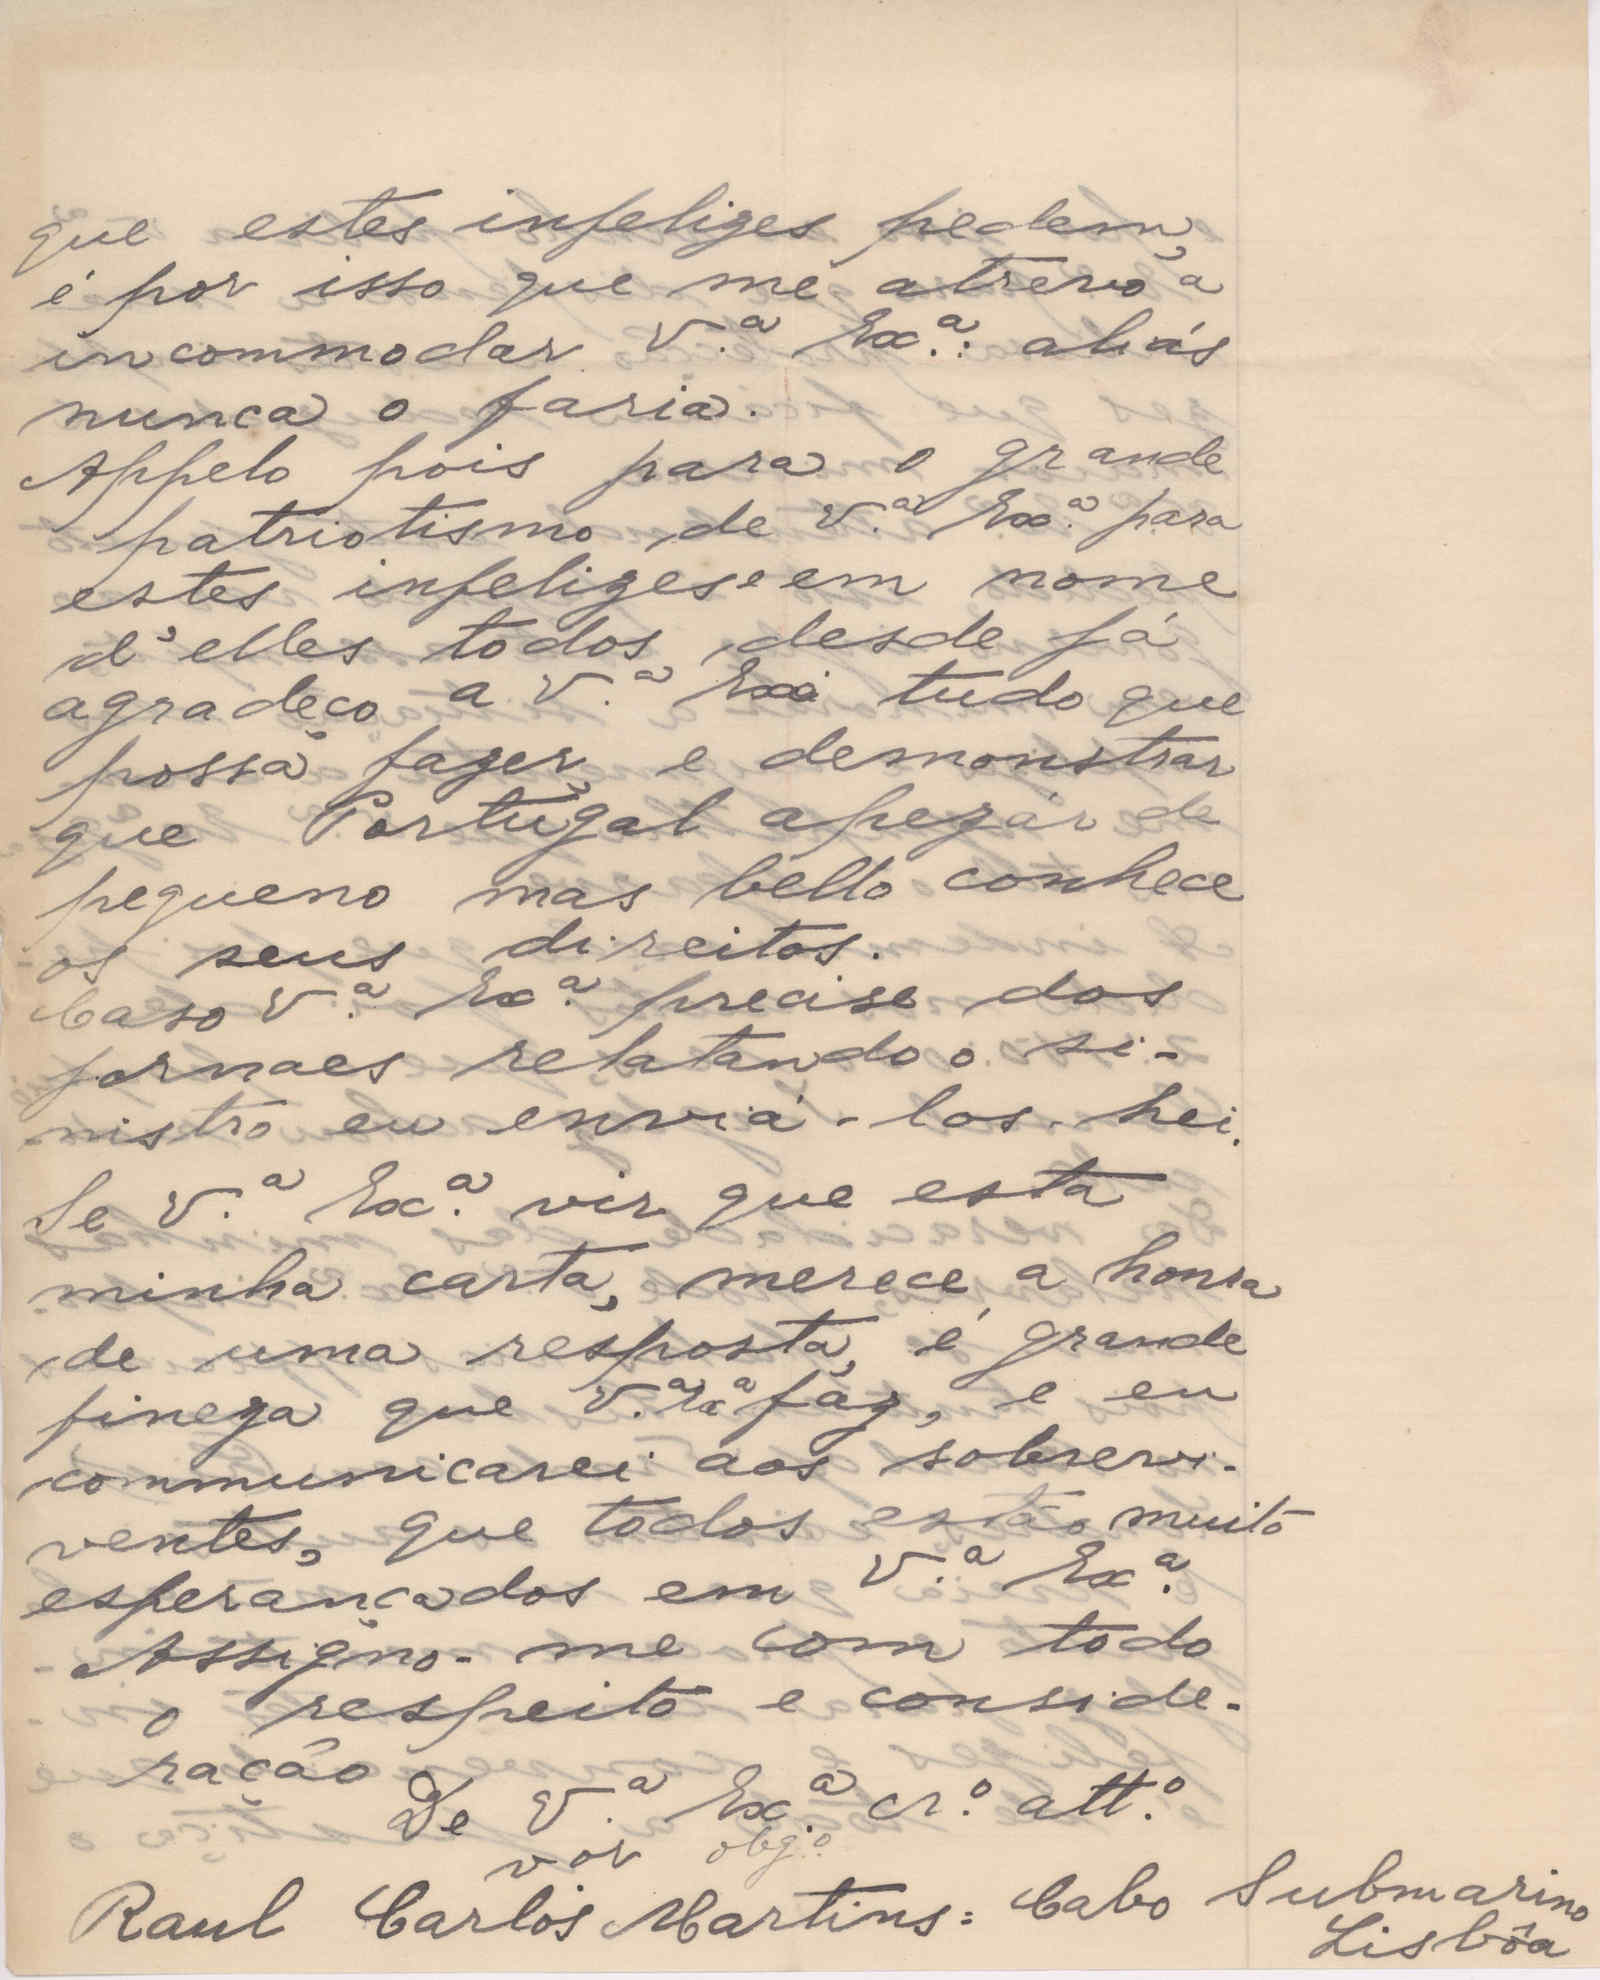 que estes infelizes pedem,
é por isso que me atrevo a
incommodar V.ª Ex.ª: aliás
nunca o faria.
Appelo pois para o grande
patriotismo de V.ª Ex.ª para
estes infelizes e em nome
d'elles todos, desde já
agradeço a V.ª Exª tudo que
possa fazer, e demonstrar
que Portugal apezár de
pequeno mas bello conhece
os seus direitos.
Caso V.ª Ex.ª precise dos
jornaes relatando o si-
nistro eu enviá-los-hei.
Se V.ª Ex.ª vir que esta
minha carta, merece a honra
de uma resposta, é grande
fineza que V.ª Exª fáz, e eu
communicarei aos sobrevi-
ventes, que todos estão muito
esperançados em V.ª Ex.ª
Assigno-me com todo
o respeito e conside-
ração
De V.ª Ex.ª cr.º att.º
vor obg.º
Raul Carlos Martins = Cabo Submarino
Lisbôa